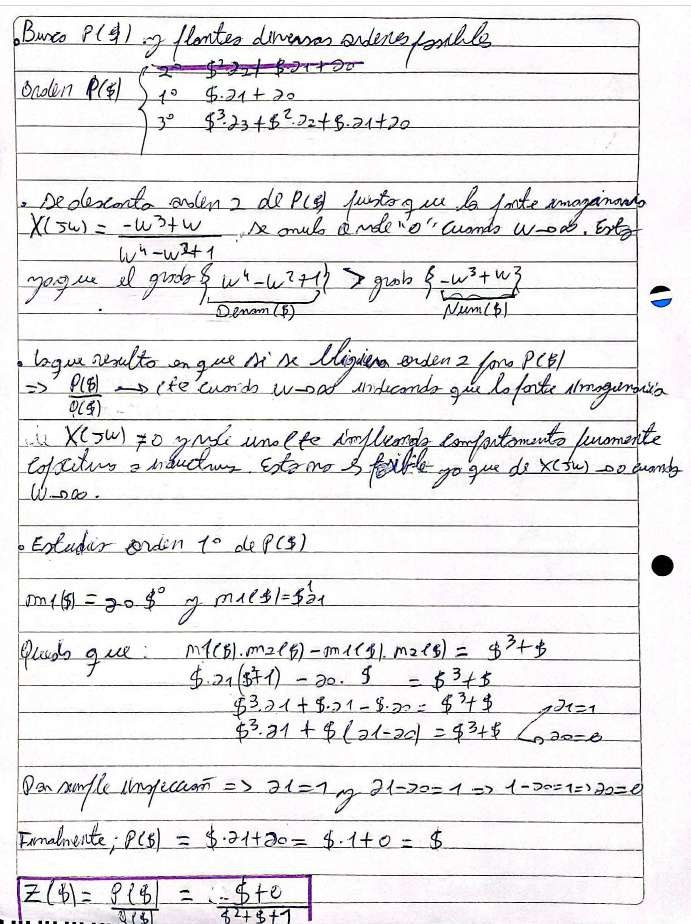 . Busco P($) y planteo diversos ordenes posibles
2° $².a2+ $.a1+a0
Orden P($) { 1° $.a1 + a0
3° $³.a3+$².a2+$.a1+a0
. Se descarta orden 2 de P($) puesto que la parte imaginaria
X(jw) = -w³+w / w⁴-w²+1 , se anula o vale "0", cuando w→∞. Esto
ya que el grado { w⁴-w²+1} > grado {-w³+w}
Denom($) Num($)
. Lo que resulta en que si se eligiera orden 2 para P($)
=> P($)/Q($) → cte cuando w→∞ indicando que la parte imaginaria
X(jw) ≠0 y vale una cte implicando comportamiento puramente
capacitivo o inductivo. Esto no es posible ya que de X(jw) →0 cuando
w→∞.
. Estudiar orden 1° de P($)
m1($) = a0 $° y n1($)=$¹a1
Queda que: n1($).m2($) - m1($). n2($) = $³+$
$.a1($²+1) - a0. $ = $³+$
$³.a1 + $.a1 - $.a0 = $³+$ a1=1
$³.a1 + $(a1-a0) = $³+$ a0=0
Por simple inspección => a1=1 y a1-a0=1 => 1-a0=1=>a0=0
Finalmente; P($) = $.a1+a0 = $.1+0 = $
Z($)= P($)/Q($) = $+0 / $²+$+1